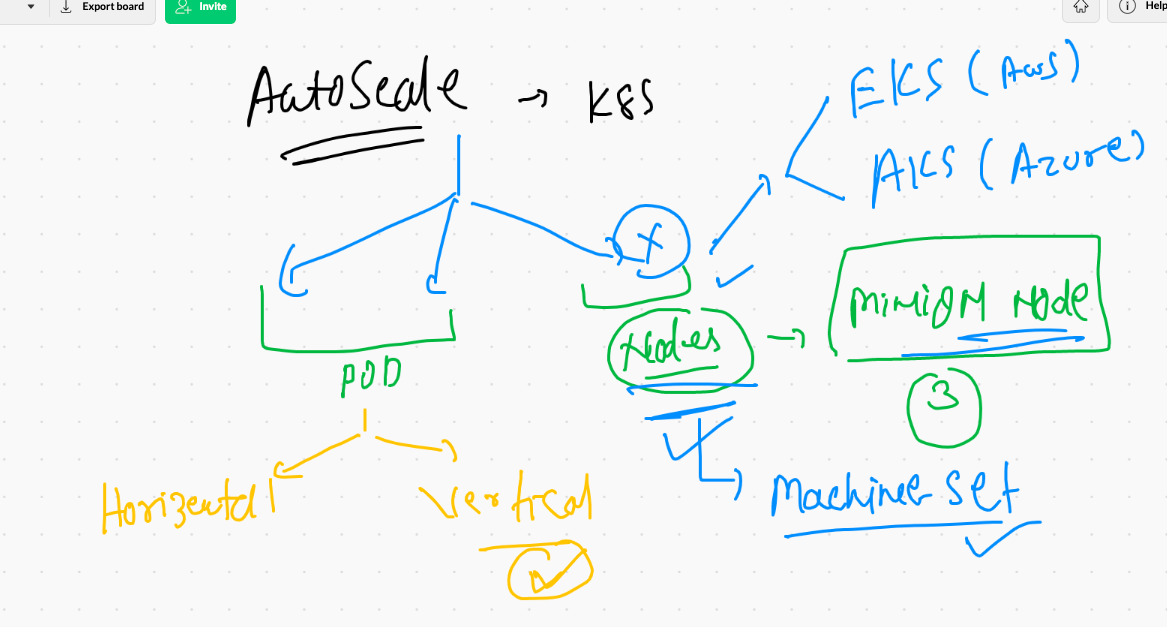 Export board
Invite
Help
AutoScale → K8S
EKS (AWS)
AKS (Azure)
X
Nodes → Minion Node
3
POD
Horizental
Vertical
Machine set